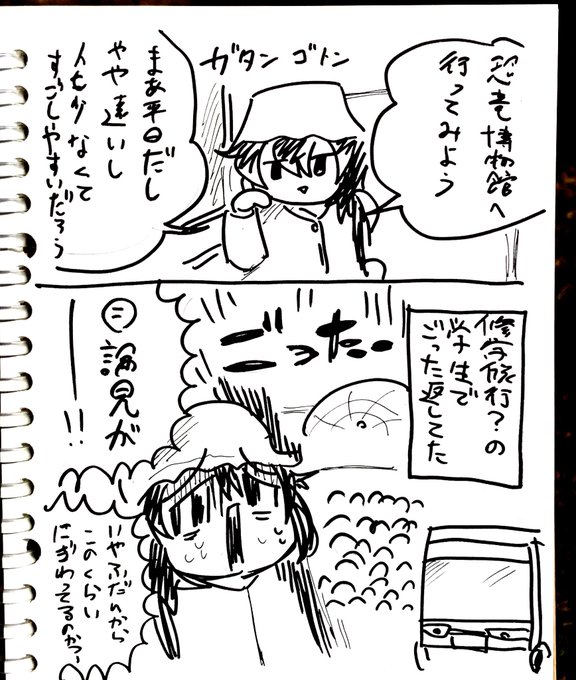 恐竜博物館へ
行ってみよう
ガタン ゴトン
まあ平日だし
やや遠いし
人も少なくて
すごしやすいだろう
修学旅行?の
学生で
ごった返してた
ごった
誤算が
ー!!
いやふだんから
このくらい
にぎわってるのかっ